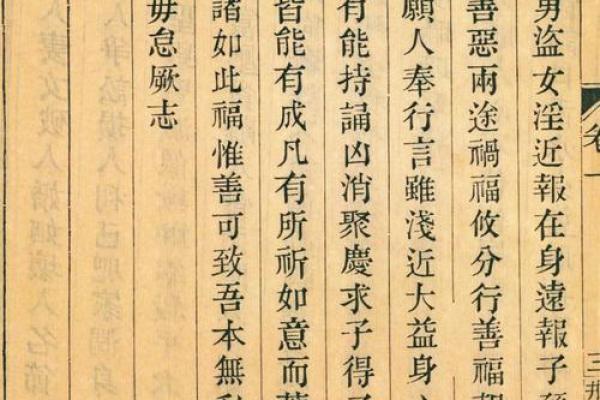 卷一
三
男盗女淫近報在身遠報子
善惡兩途禍福攸分行善福報
願人奉行言雖淺近大益身
有能持誦凶消聚慶求子得子
皆能有成凡有所祈如意而
諸如此福惟善可致吾本無私
毋怠厥志